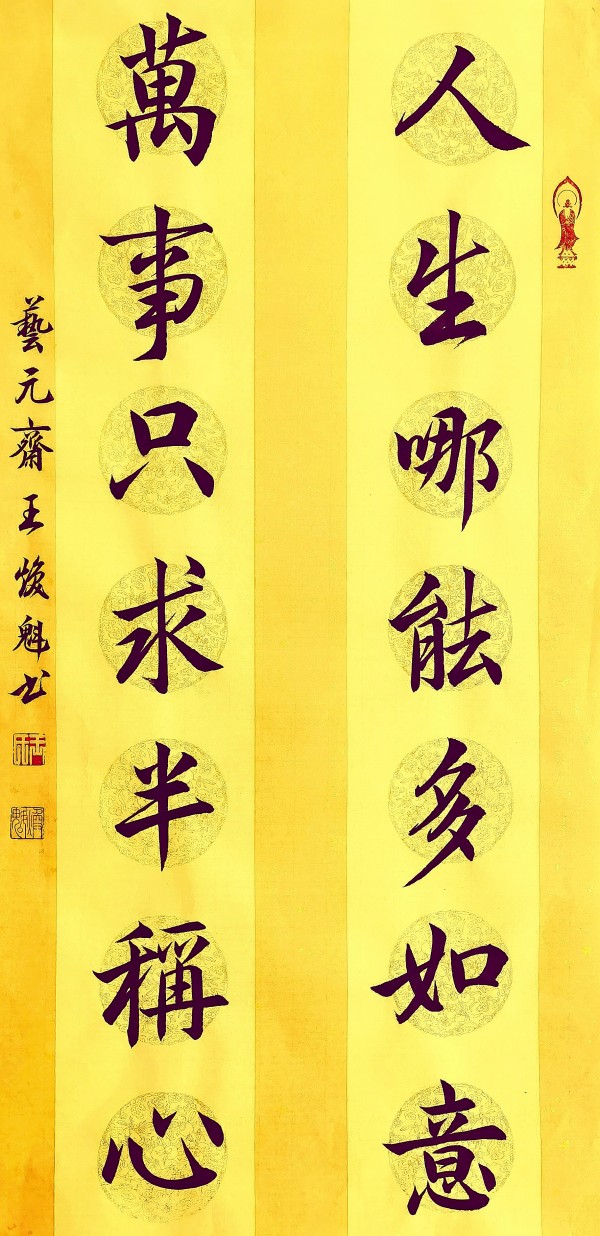 人生哪能多如意
萬事只求半稱心
藝元齋王焌魁书